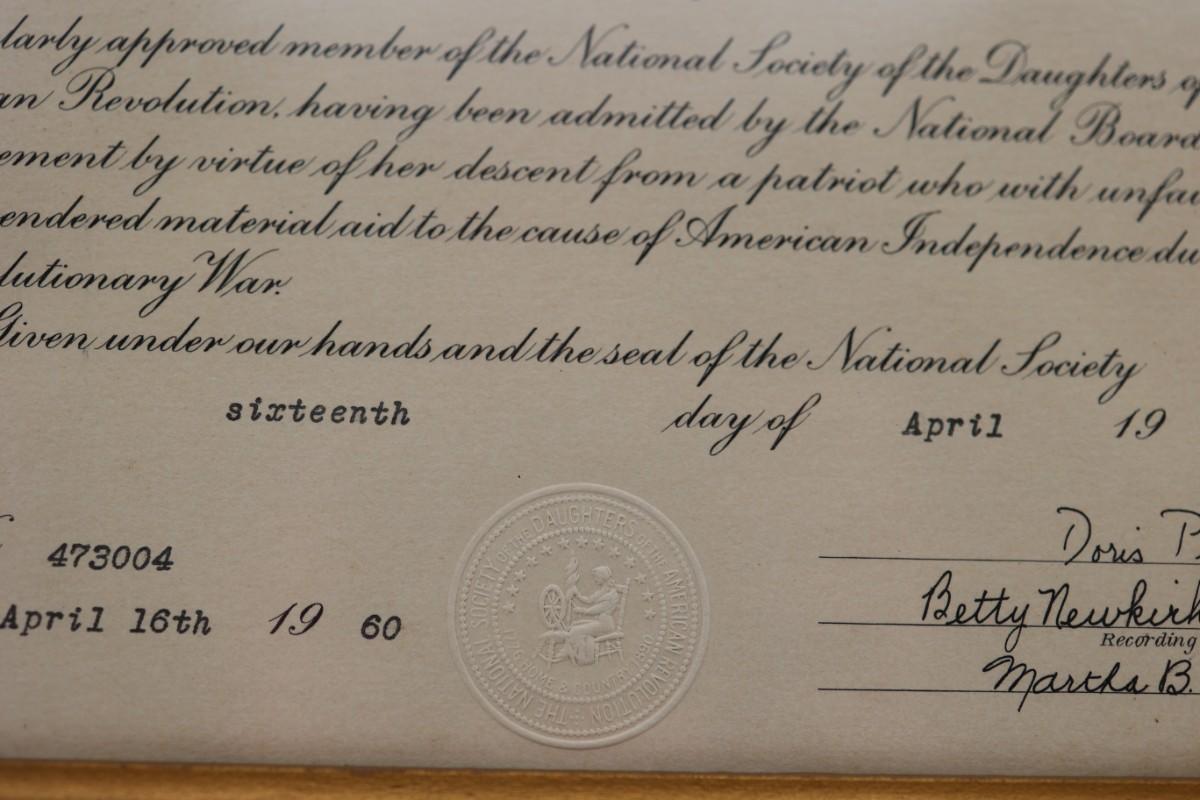 larly approved member of the National Society of the Daughters of
an Revolution, having been admitted by the National Board
ement by virtue of her descent from a patriot who with unfai
endered material aid to the cause of American Independence du
lutionary War.
Given under our hands and the seal of the National Society
sixteenth day of April 19
473004
April 16th 19 60
THE NATIONAL SOCIETY OF THE DAUGHTERS OF THE AMERICAN REVOLUTION
1776 HOME & COUNTRY 1890
Doris P
Betty Newkirk
Recording
Martha B.